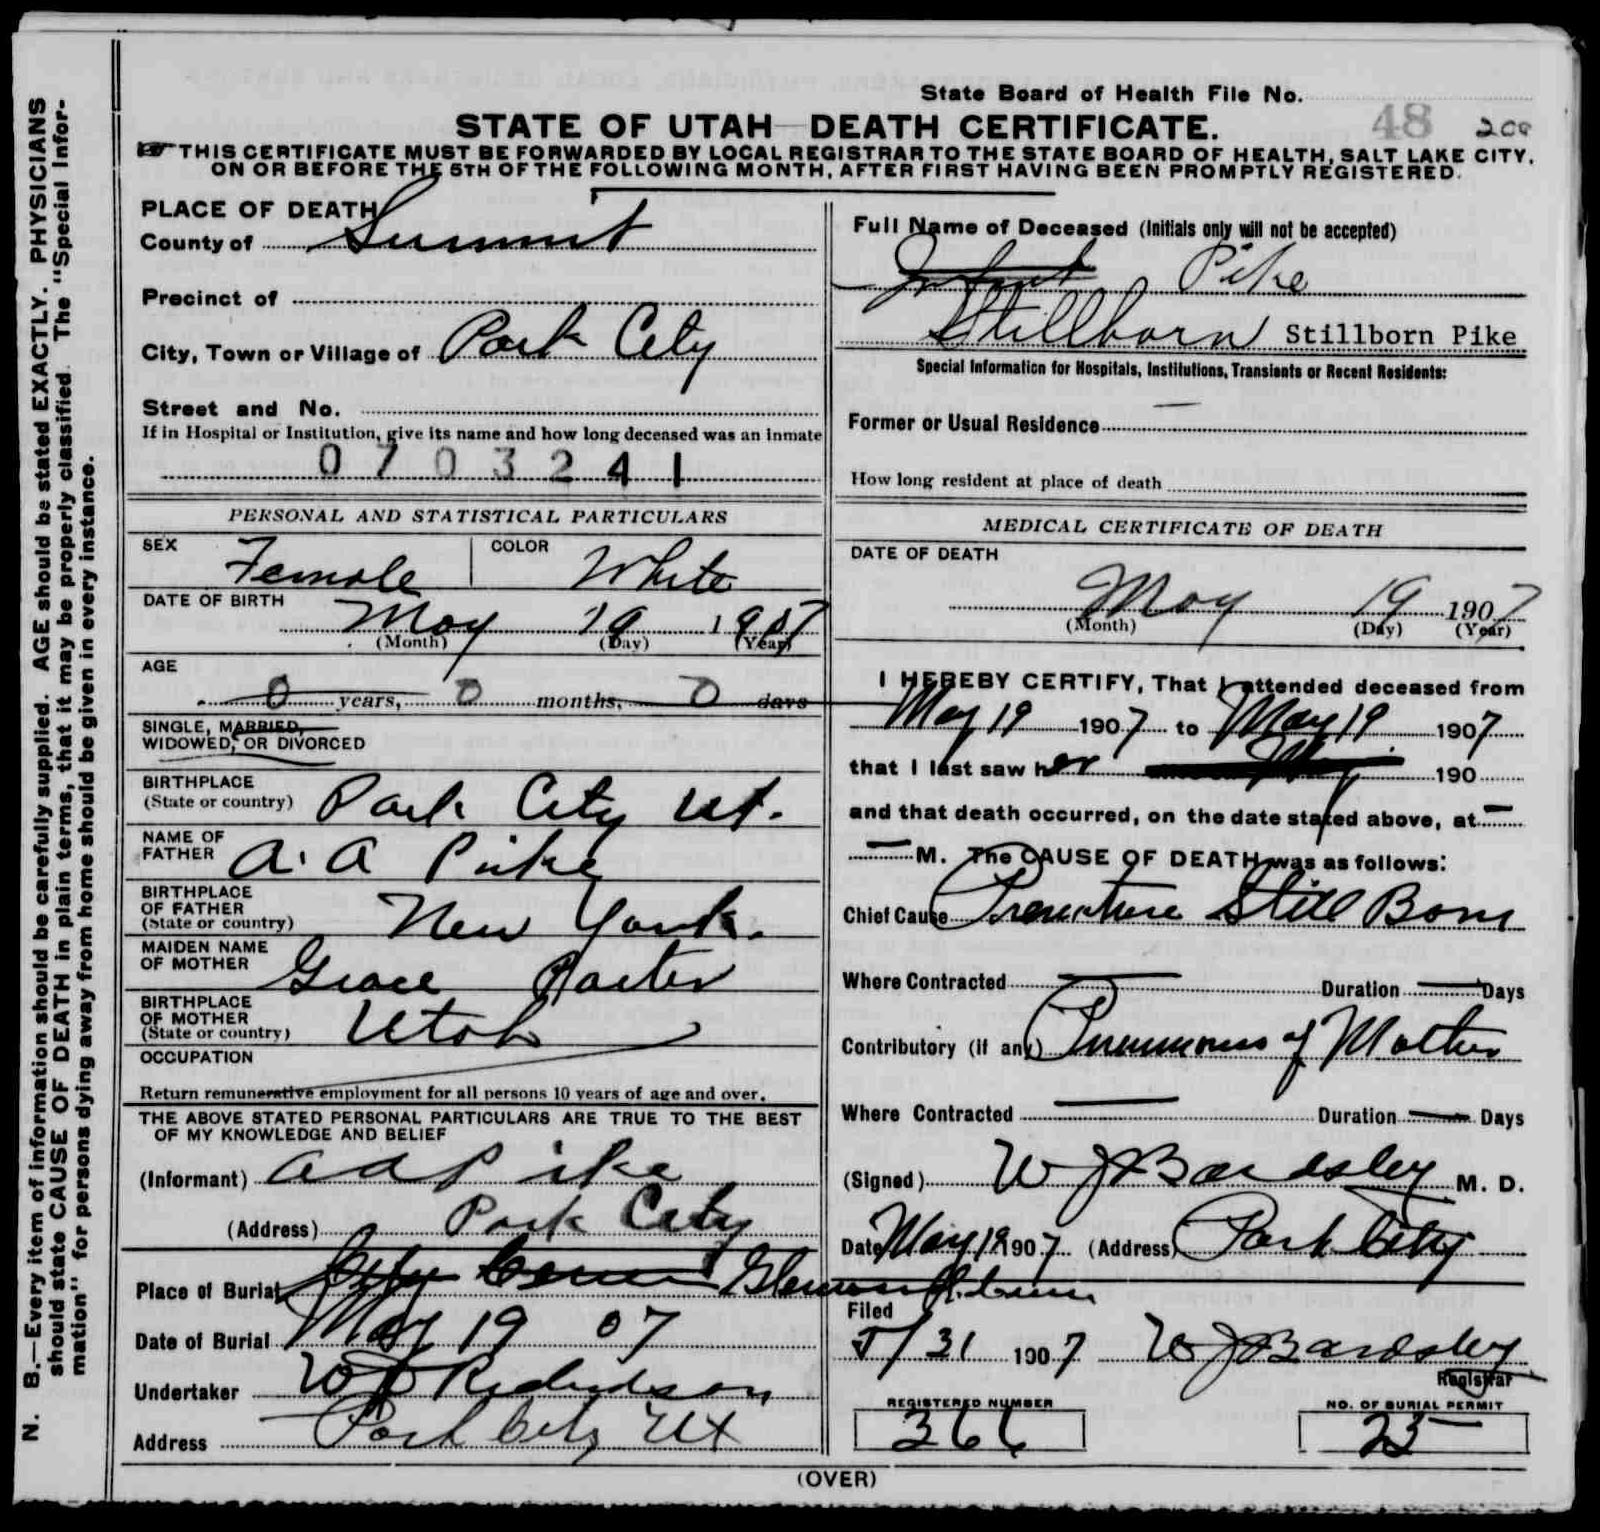 State Board of Health File No.
48 200
STATE OF UTAH DEATH CERTIFICATE.
THIS CERTIFICATE MUST BE FORWARDED BY LOCAL REGISTRAR TO THE STATE BOARD OF HEALTH, SALT LAKE CITY,
ON OR BEFORE THE 5TH OF THE FOLLOWING MONTH, AFTER FIRST HAVING BEEN PROMPTLY REGISTERED.
N. B.—Every item of information should be carefully supplied. AGE should be stated EXACTLY. PHYSICIANS
should state CAUSE OF DEATH in plain terms, that it may be properly classified. The "Special Infor-
mation" for persons dying away from home should be given in every instance.
PLACE OF DEATH
County of Summit
Precinct of
City, Town or Village of Park City
Street and No.
If in Hospital or Institution, give its name and how long deceased was an inmate
0703241
PERSONAL AND STATISTICAL PARTICULARS
SEX Female COLOR White
DATE OF BIRTH May 19 1907
(Month) (Day) (Year)
AGE
0 years, 0 months, 0 days
SINGLE, MARRIED,
WIDOWED, OR DIVORCED
BIRTHPLACE
(State or country) Park City Ut.
NAME OF
FATHER A. A Pike
BIRTHPLACE
OF FATHER
(State or country) New York.
MAIDEN NAME
OF MOTHER Grace Porter
BIRTHPLACE
OF MOTHER
(State or country) Utah
OCCUPATION
Return remunerative employment for all persons 10 years of age and over.
THE ABOVE STATED PERSONAL PARTICULARS ARE TRUE TO THE BEST
OF MY KNOWLEDGE AND BELIEF
(Informant) A A Pike
(Address) Park City
Place of Burial City Glenwood
Date of Burial May 19 07
Undertaker Richardson
Address Park City Ut
Full Name of Deceased (Initials only will not be accepted)
Infant Pike
Stillborn Stillborn Pike
Special Information for Hospitals, Institutions, Transients or Recent Residents:
Former or Usual Residence —
How long resident at place of death
MEDICAL CERTIFICATE OF DEATH
DATE OF DEATH
May 19 1907
(Month) (Day) (Year)
I HEREBY CERTIFY, That I attended deceased from
May 19 1907 to May 19 1907
that I last saw her 190
and that death occurred, on the date stated above, at —
— M. The CAUSE OF DEATH was as follows:
Chief Cause Premature Still Born
Where Contracted — Duration — Days
Contributory (if any) Pneumonia of Mother
Where Contracted — Duration — Days
(Signed) W J Bardsley M. D.
Date May 19 1907 (Address) Park City
Filed
5/31 1907 W J Bardsley
Registrar
REGISTERED NUMBER
366
NO. OF BURIAL PERMIT
25
(OVER)